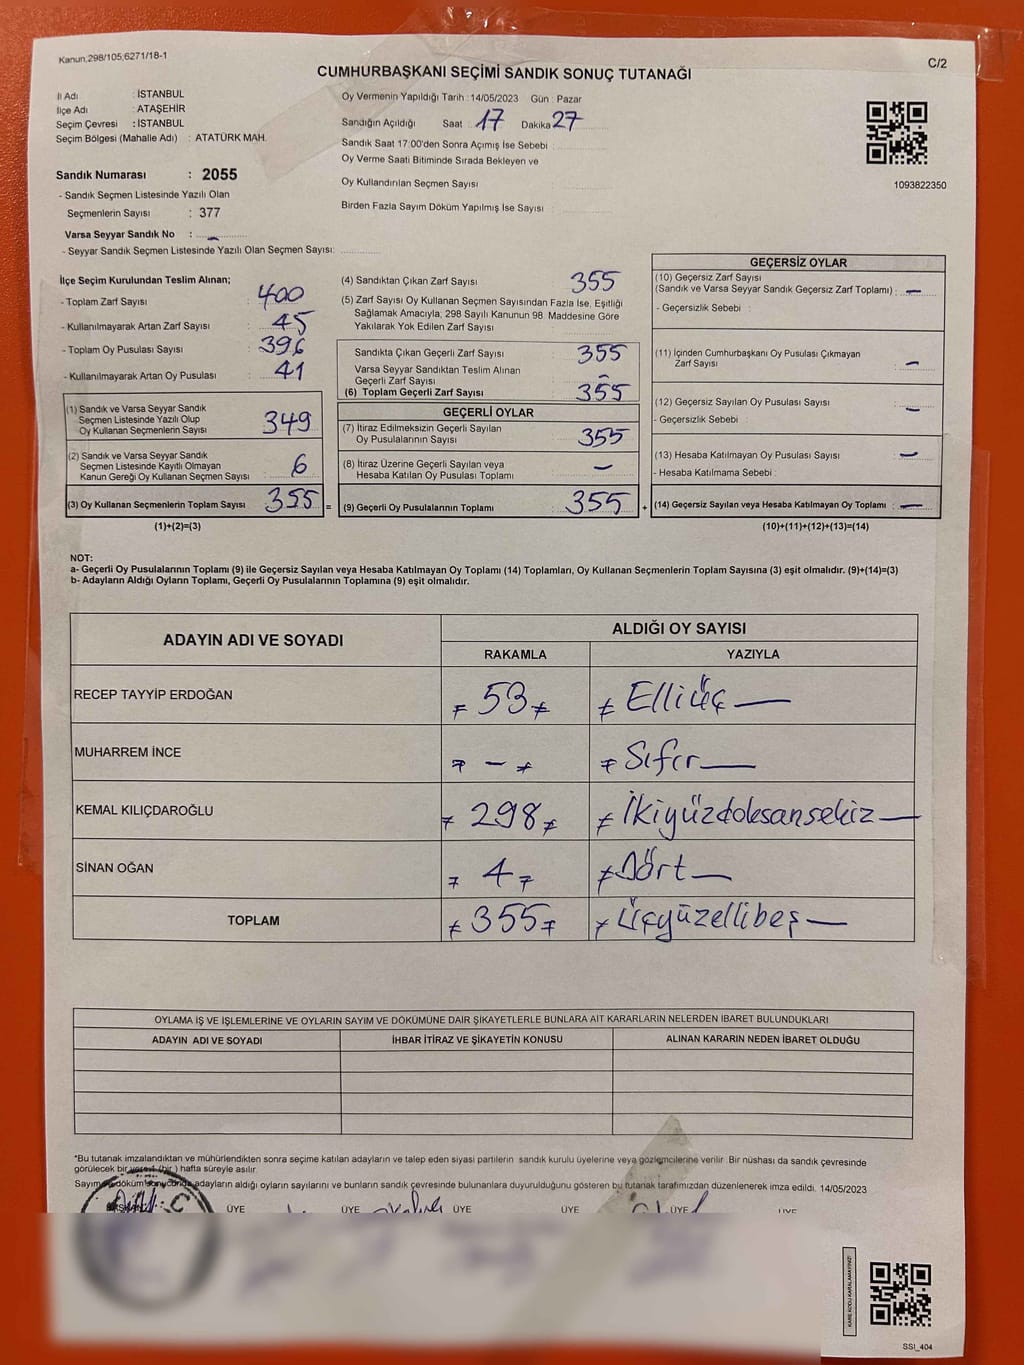 Kanun;298/105;6271/18-1
C/2
CUMHURBAŞKANI SEÇİMİ SANDIK SONUÇ TUTANAĞI
İl Adı : İSTANBUL
İlçe Adı : ATAŞEHİR
Seçim Çevresi : İSTANBUL
Seçim Bölgesi (Mahalle Adı) : ATATÜRK MAH.
Oy Vermenin Yapıldığı Tarih : 14/05/2023 Gün : Pazar
Sandığın Açıldığı Saat : 17 Dakika 27
Sandık Saat 17:00'den Sonra Açımış İse Sebebi :
Oy Verme Saati Bitiminde Sırada Bekleyen ve
Oy Kullandırılan Seçmen Sayısı :
Birden Fazla Sayım Döküm Yapılmış İse Sayısı :
1093822350
Sandık Numarası : 2055
- Sandık Seçmen Listesinde Yazılı Olan
Seçmenlerin Sayısı : 377
Varsa Seyyar Sandık No : -
- Seyyar Sandık Seçmen Listesinde Yazılı Olan Seçmen Sayısı:
İlçe Seçim Kurulundan Teslim Alınan;
- Toplam Zarf Sayısı : 400
- Kullanılmayarak Artan Zarf Sayısı : 45
- Toplam Oy Pusulası Sayısı : 396
- Kullanılmayarak Artan Oy Pusulası : 41
(1) Sandık ve Varsa Seyyar Sandık
Seçmen Listesinde Yazılı Olup
Oy Kullanan Seçmenlerin Sayısı 349
(2) Sandık ve Varsa Seyyar Sandık
Seçmen Listesinde Kayıtlı Olmayan
Kanun Gereği Oy Kullanan Seçmen Sayısı 6
(3) Oy Kullanan Seçmenlerin Toplam Sayısı 355 =
(1)+(2)=(3)
(4) Sandıktan Çıkan Zarf Sayısı 355
(5) Zarf Sayısı Oy Kullanan Seçmen Sayısından Fazla İse, Eşitliği
Sağlamak Amacıyla; 298 Sayılı Kanunun 98. Maddesine Göre
Yakılarak Yok Edilen Zarf Sayısı
Sandıkta Çıkan Geçerli Zarf Sayısı 355
Varsa Seyyar Sandıktan Teslim Alınan
Geçerli Zarf Sayısı -
(6) Toplam Geçerli Zarf Sayısı 355
GEÇERLİ OYLAR
(7) İtiraz Edilmeksizin Geçerli Sayılan
Oy Pusulalarının Sayısı 355
(8) İtiraz Üzerine Geçerli Sayılan veya
Hesaba Katılan Oy Pusulası Toplamı -
(9) Geçerli Oy Pusulalarının Toplamı 355 +
GEÇERSİZ OYLAR
(10) Geçersiz Zarf Sayısı
(Sandık ve Varsa Seyyar Sandık Geçersiz Zarf Toplamı) : -
- Geçersizlik Sebebi :
(11) İçinden Cumhurbaşkanı Oy Pusulası Çıkmayan
Zarf Sayısı : -
(12) Geçersiz Sayılan Oy Pusulası Sayısı : -
- Geçersizlik Sebebi :
(13) Hesaba Katılmayan Oy Pusulası Sayısı : -
- Hesaba Katılmama Sebebi :
(14) Geçersiz Sayılan veya Hesaba Katılmayan Oy Toplamı : -
(10)+(11)+(12)+(13)=(14)
NOT:
a- Geçerli Oy Pusulalarının Toplamı (9) ile Geçersiz Sayılan veya Hesaba Katılmayan Oy Toplamı (14) Toplamları, Oy Kullanan Seçmenlerin Toplam Sayısına (3) eşit olmalıdır. (9)+(14)=(3)
b- Adayların Aldığı Oyların Toplamı, Geçerli Oy Pusulalarının Toplamına (9) eşit olmalıdır.
ADAYIN ADI VE SOYADI
ALDIĞI OY SAYISI
RAKAMLA YAZIYLA
RECEP TAYYİP ERDOĞAN 53 Elliüç
MUHARREM İNCE - Sıfır
KEMAL KILIÇDAROĞLU 298 İkiyüzdoksansekiz
SİNAN OĞAN 4 Dört
TOPLAM 355 Üçyüzellibeş
OYLAMA İŞ VE İŞLEMLERİNE VE OYLARIN SAYIM VE DÖKÜMÜNE DAİR ŞİKAYETLERLE BUNLARA AİT KARARLARIN NELERDEN İBARET BULUNDUKLARI
ADAYIN ADI VE SOYADI İHBAR İTİRAZ VE ŞİKAYETİN KONUSU ALINAN KARARIN NEDEN İBARET OLDUĞU
*Bu tutanak imzalandıktan ve mühürlendikten sonra seçime katılan adayların ve talep eden siyasi partilerin sandık kurulu üyelerine veya gözlemcilerine verilir. Bir nüshası da sandık çevresinde
görülecek bir yere 1 (bir ) hafta süreyle asılır.
Sayım ve döküm sonucunda adayların aldığı oyların sayılarını ve bunların sandık çevresinde bulunanlara duyurulduğunu gösteren bu tutanak tarafımızdan düzenlenerek imza edildi. 14/05/2023
ÜYE ÜYE ÜYE ÜYE ÜYE ÜYE
KAREKODU KARALAMAYINIZ!
SSI_404